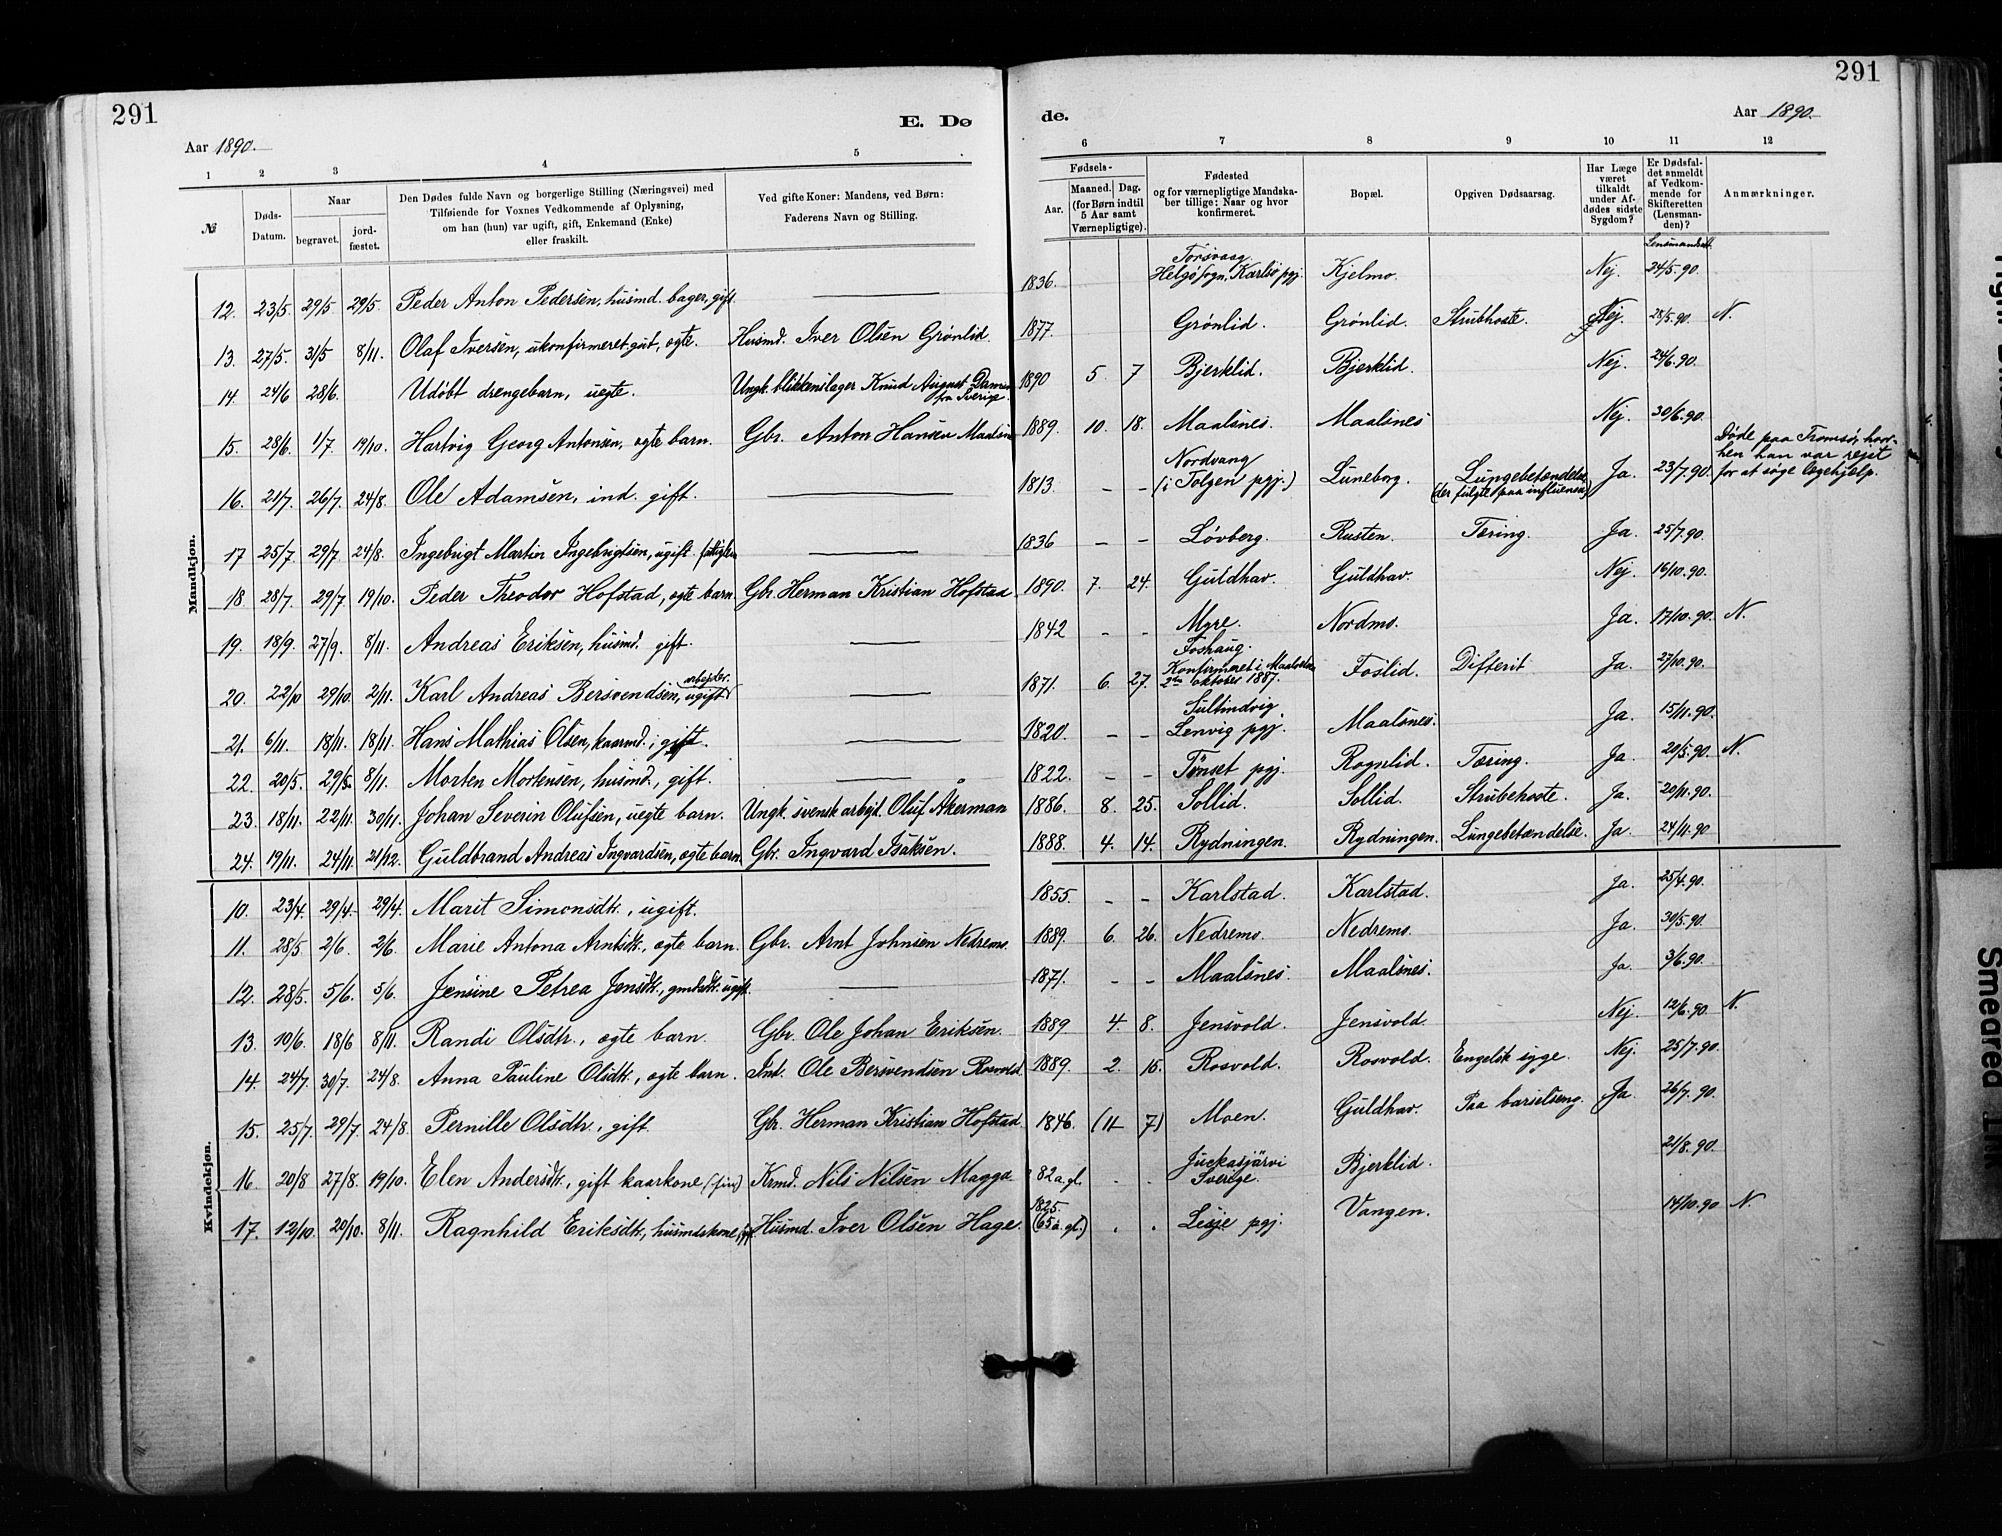 291
291
E. Dø
de.
Aar 1890.
Aar 1890.
1 2 3 4 5 6 7 8 9 10 11 12
№
Døds-
Datum.
Naar
begravet.
jord-
fæstet.
Den Dødes fulde Navn og borgerlige Stilling (Næringsvei) med
Tilføiende for Voxnes Vedkommende af Oplysning,
om han (hun) var ugift, gift, Enkemand (Enke)
eller fraskilt.
Ved gifte Koner: Mandens, ved Børn:
Faderens Navn og Stilling.
Fødsels-
Aar.
Maaned. Dag.
(for Børn indtil
5 Aar samt
Værnepligtige).
Fødested
og for værnepligtige Mandska-
ber tillige: Naar og hvor
konfirmeret.
Bopæl.
Opgiven Dødsaarsag.
Har Læge
været
tilkaldt
under Af-
dødes sidste
Sygdom?
Er Dødsfal-
det anmeldt
af Vedkom-
mende for
Skifteretten
(Lensman-
den)?
Anmærkninger.
Mandkjøn.
12. 23/5. 29/5 29/5. Peder Anton Pedersen, husmd. bager, gift. 1836. Torsvaag Helgø sogn, Karlsø pgj. Kjelmo. Nej. 24/5.90.
13. 27/5. 31/5 8/11. Olaf Iversen, ukonfirmeret gut, ægte. Husmd. Iver Olsen Grønlid. 1877. Grønlid. Grønlid. Strubhoste. Nej. 28/5.90. N.
14. 24/6 28/6. Udøbt drengebarn, uegte. Ungk. blikkenslager Knud August fra Sverige. 1890 5. 7 Bjerklid. Bjerklid. Nej. 24/6.90.
15. 28/6. 1/7. 19/10. Hartvig Georg Antonsen, ægte barn. Gbr. Anton Hansen Maalsnes 1889. 10. 18. Maalsnes. Maalsnes Nej. 30/6.90.
16. 21/7. 26/7. 24/8. Ole Adamsen, ind. gift. 1813. – – Nordvang (i Tolgen pgj.) Luneborg. Lungebetændelse (der fulgte paa influensa) Ja. 23/7.90. Døde paa Tromsø, hvor-
hen han var rejst
for at søge lægehjælp.
17 25/7. 29/7. 24/8. Ingebrigt Martin Ingebrigtsen, ugift 1836 – – Løvberg. Rusten. Tæring. Ja. 25/7.90.
18 28/7. 29/7. 19/10. Peder Theodor Hofstad, ægte barn. Gbr. Herman Kristian Hofstad 1890. 7. 24. Guldhav. Guldhav. Nej. 16/10.90.
19. 18/9. 27/9. 8/11. Andreas Eriksen, husmd. gift. 1842 – – Myre. Nordmo. Ja. 17/10.90. N.
20. 22/10 29/10. 2/11. Karl Andreas Bersvendsen, arbejder. ugift 1871. 6. 27. Foshaug. Konfirmeret i Maalselven 2den oktober 1887. Foslid. Difterit Ja. 27/10.90.
21. 6/11. 18/11. 18/11. Hans Mathias Olsen, kaarmd., gift. 1820. – – Sultindvig Lenvig pgj. Maalsnes. Ja. 15/11.90.
22. 20/5. 29/5. 8/11. Morten Mortensen, husmd., gift. 1822. – – Tønset pgj. Rognlid. Tæring. Ja. 20/5.90. N.
23. 18/11. 22/11. 30/11. Johan Severin Olufsen, uegte barn. Ungk. svensk arbejd. Oluf Åkerman 1886. 8. 25. Sollid. Sollid. Strubehoste. Ja. 20/11.90.
24. 19/11. 24/11. 21/12. Guldbrand Andreas Ingvardsen, ægte barn. Gbr. Ingvard Isaksen. 1888. 4. 14. Rydningen. Rydningen. Lungebetændelse. Ja. 24/11.90
Kvindekjøn.
10. 23/4. 29/4. 29/4. Marit Simonsdtr., ugift. 1855. – – Karlstad. Karlstad. Ja. 25/4.90.
11. 28/5. 2/6. 2/6. Marie Antona Arntsdtr., ægte barn. Gbr. Arnt Johnsen Nedremo. 1889. 6. 26. Nedremo. Nedremo. Ja. 30/5.90.
12. 28/5. 5/6. 5/6. Jensine Petrea Jensdtr., gmdsdtr. ugift. 1871. – – Maalsnes. Maalsnes. Ja. 3/6.90.
13. 10/6. 18/6 8/11. Randi Olsdtr., ægte barn. Gbr. Ole Johan Eriksen. 1889. 4. 8. Jensvold. Jensvold. Nej. 12/6.90. N.
14. 24/7. 30/7. 24/8. Anna Pauline Olsdtr., ægte barn. Ind. Ole Bersvendsen Rosvold. 1889. 2. 15. Rosvold. Rosvold. Engelsk syge. Nej. 25/7.90.
15. 25/7. 29/7. 24/8. Pernille Olsdtr., gift. Gbr. Herman Kristian Hofstad. 1846. (11 7) Moen. Guldhav. Paa barselseng. Ja. 26/7.90.
16. 20/8 27/8. 19/10. Elen Andersdtr., gift kaarkone (fin) Krmd. Nils Nilsen Magga 82 a. gl. . . Juckasjärvi Sverige. Bjerklid. 21/8.90.
17. 12/10. 20/10. 8/11. Ragnhild Eriksdtr., husmdskone, Husmd. Iver Olsen Hage. 1825. (65 a. gl.) . . Lesje pgj. Vangen. 14/10.90 N.
Smeared Ink